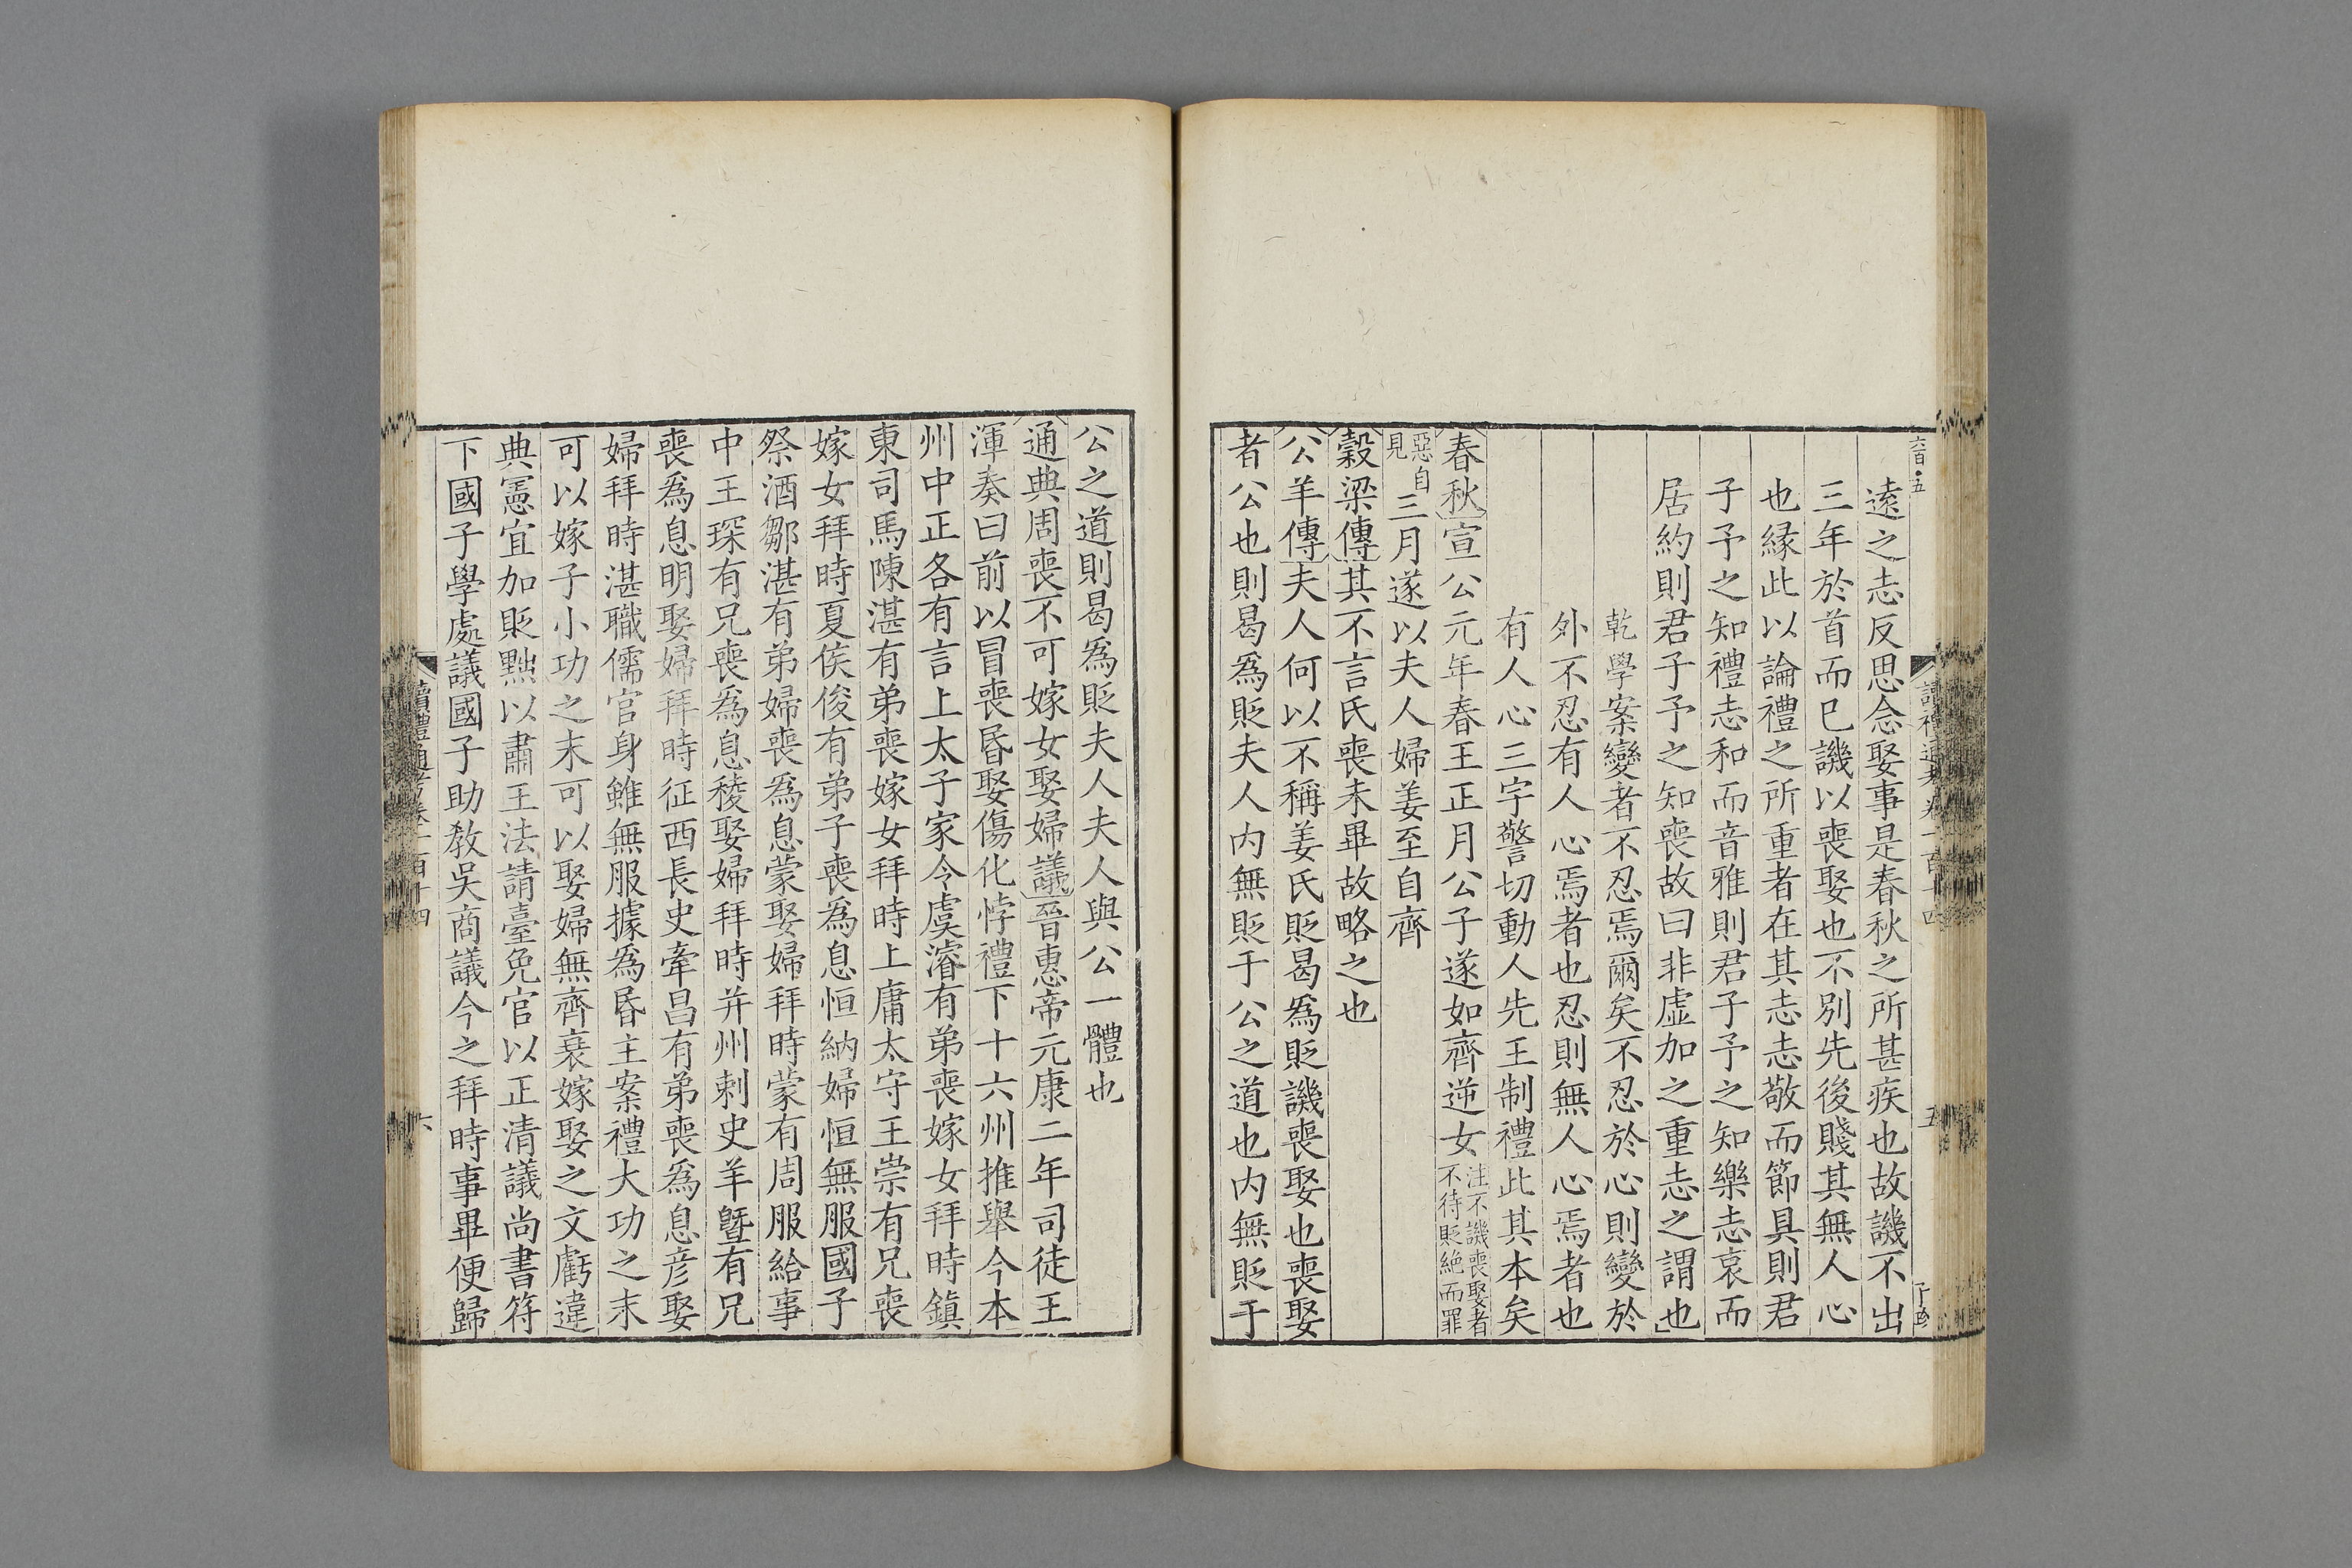 六百·五
讀禮通考卷一百十四
五
遠之志反思念娶事是春秋之所甚疾也故譏不出
三年於首而已譏以喪娶也不別先後賤其無人心
也縁此以論禮之所重者在其志志敬而節具則君
子予之知禮志和而音雅則君子予之知樂志哀而
居約則君子予之知喪故曰非虛加之重志之謂也
乾學案變者不忍焉爾矣不忍於心則變於
外不忍有人心焉者也忍則無人心焉者也
有人心三字警切動人先王制禮此其本矣
春秋宣公元年春王正月公子遂如齊逆女注不譏喪娶者不待貶絶而罪
惡自見三月遂以夫人婦姜至自齊
穀梁傳其不言氏喪未畢故略之也
公羊傳夫人何以不稱姜氏貶曷爲貶譏喪娶也喪娶
者公也則曷爲貶夫人内無貶于公之道也内無貶于
公之道則曷爲貶夫人夫人與公一體也
通典周喪不可嫁女娶婦議晉惠帝元康二年司徒王
渾奏曰前以冒喪昬娶傷化悖禮下十六州推舉今本
州中正各有言上太子家令虞濬有弟喪嫁女拜時鎮
東司馬陳湛有弟喪嫁女拜時上庸太守王崇有兄喪
嫁女拜時夏侯俊有弟子喪爲息恒納婦恒無服國子
祭酒鄒湛有弟婦喪爲息蒙娶婦拜時蒙有周服給事
中王琛有兄喪爲息稜娶婦拜時并州刺史羊曁有兄
喪爲息明娶婦拜時征西長史牽昌有弟喪爲息彦娶
婦拜時湛職儒官身雖無服據爲昬主案禮大功之末
可以嫁子小功之末可以娶婦無齊衰嫁娶之文虧違
典憲宜加貶黜以肅王法請臺免官以正清議尚書符
下國子學處議國子助教吳商議今之拜時事畢便歸
讀禮通考卷一百十四
六